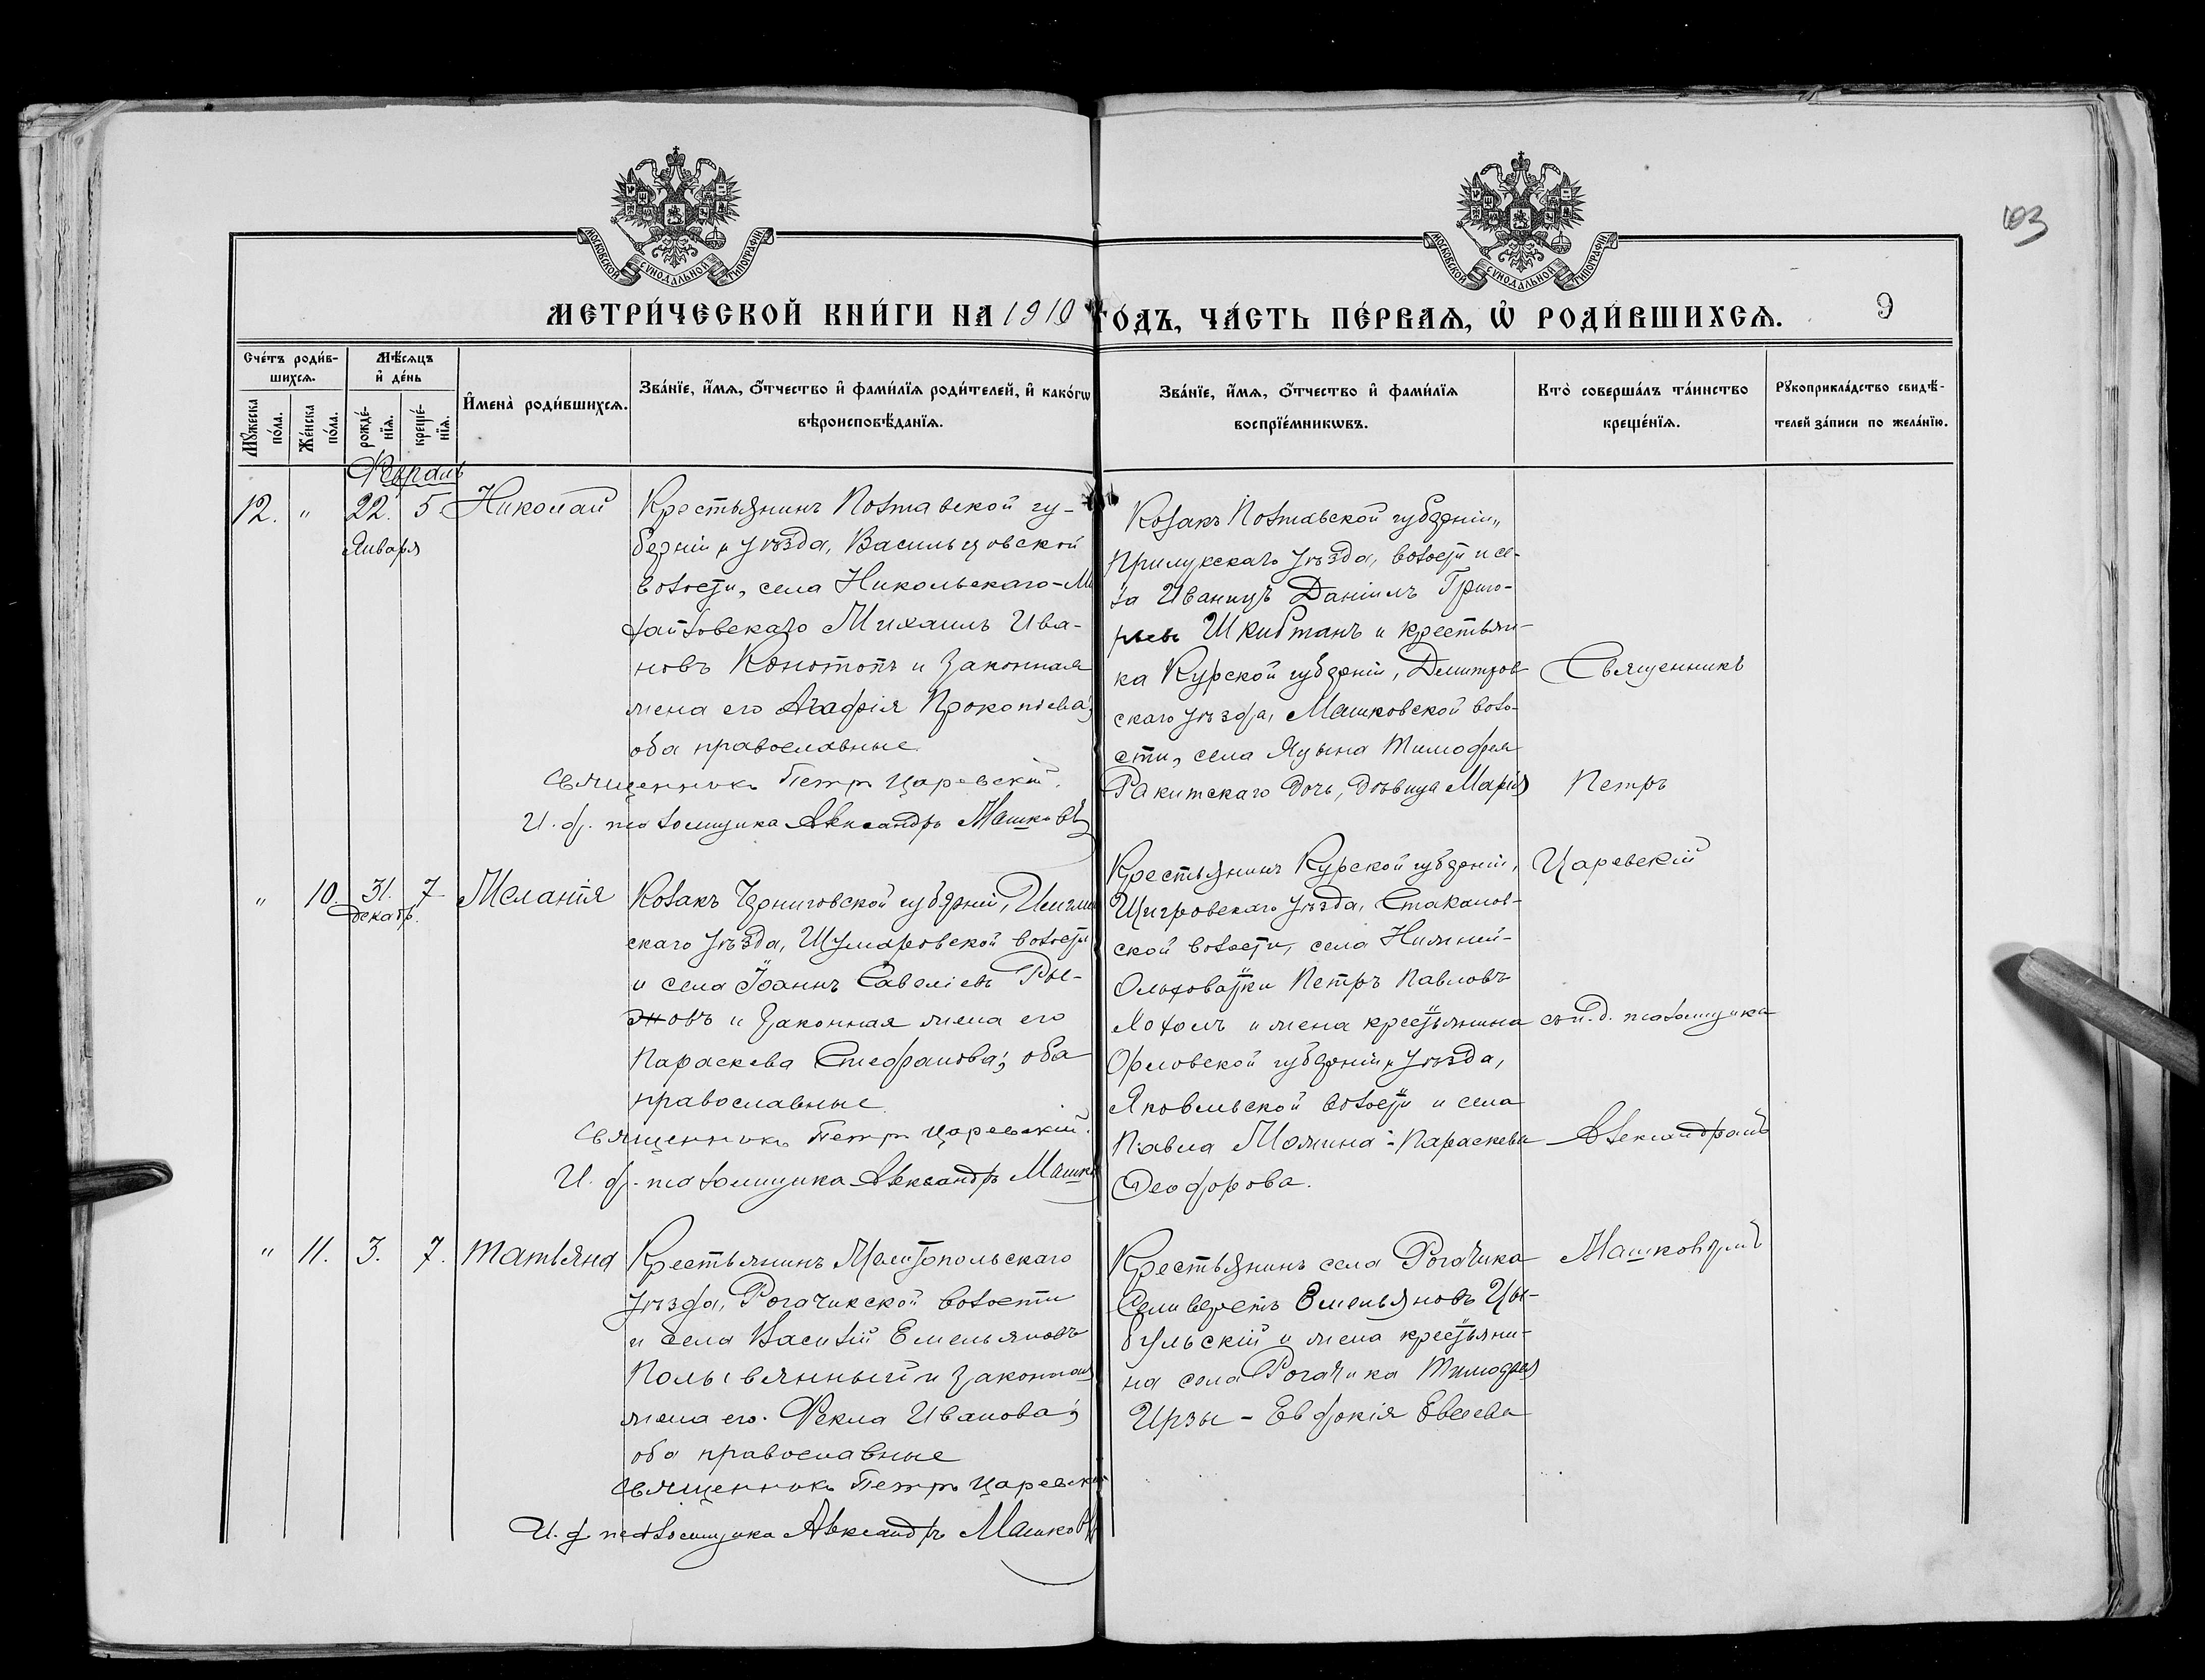 103
МОСКОВСКОЙ СѴНОДАЛЬНОЙ ТИПОГРАФІИ
МОСКОВСКОЙ СѴНОДАЛЬНОЙ ТИПОГРАФІИ
МЕТРИ́ЧЕСКОЙ КНИ́ГИ НА 1910 ГО́ДЪ, ЧА́СТЬ ПЕ́РВАѦ, Ѡ҆ РОДИ́ВШИХСѦ. 9
Сче́тъ роди́в-
шихсѧ.
Мѣ́сѧцъ
и҆ де́нь
Мꙋ́жеска по́ла.
Же́нска по́ла.
рожде́-
нїѧ.
креще́-
нїѧ.
И҆мена̀ роди́вшихсѧ.
Зва́нїе, и҆́мѧ, ѻ҆́тчество и҆ фами́лїѧ роди́телей, и҆ како́гѡ
вѣроисповѣ́данїѧ.
Зва́нїе, и҆́мѧ, ѻ҆́тчество и҆ фами́лїѧ
воспрїе́мникѡвъ.
Кто̀ соверша́лъ та́инство
креще́нїѧ.
Рꙋкоприкла́дство свидѣ́-
телей за́писи по жела́нїю.
Февраль
12. " 22. 5 Николай
Января
Крестьянинъ Полтавской гу-
берніи и уѣзда, Васильцовской
волости, села Никольскаго-
Михаилъ Ива-
новъ Конотопъ и законная
жена его Агафія Прокопіева;
оба православные.
Священникъ Петръ Царевскій.
И. д. псаломщика Александръ Машковъ
Козакъ Полтавской губерніи,
Прилукскаго уѣзда, волости и се-
ла Иваницъ Даніилъ Григо-
рьевъ Шкибтанъ и крестьян-
ка Курской губерніи, Димитров-
скаго уѣзда, Машковской воло-
сти, села Яцына Тимофея
Ракитскаго дочь, дѣвица Марія
Священникъ
Петръ
Царевскій
" 10. 31. 7 Меланія
декабр.
Козакъ Черниговской губерніи,
скаго уѣзда, волости
и села Іоаннъ Савеліевъ Ры-
жовъ и законная жена его
Параскева Стефанова; оба
православные.
Священникъ Петръ Царевскій.
И. д. псаломщика Александръ Машк
Крестьянинъ Курской губерніи,
Щигровскаго уѣзда, Стаканов-
ской волости, села Нижней-
Ольховатки Петръ Павловъ
и жена крестьянина
Орловской губерніи и уѣзда,
Яковлевской волости и села
Павла Мамина - Параскева
Ѳеодорова.
съ и. д. псаломщика
Александромъ
" 11. 3. 7. Татьяна
Крестьянинъ Мелитопольскаго
уѣзда, Рогачикской волости
и села Василій Емельяновъ
и законная
жена его Фекла Иванова;
оба православные
Священникъ Петръ Царевскій
И. д. псаломщика Александръ Машковъ
Крестьянинъ села Рогачика
Селиверстъ Емельяновъ Цы-
бульскій и жена крестьяни-
на села Рогачика Тимофея
Ирзы - Евдокія Евсеева
Машковымъ